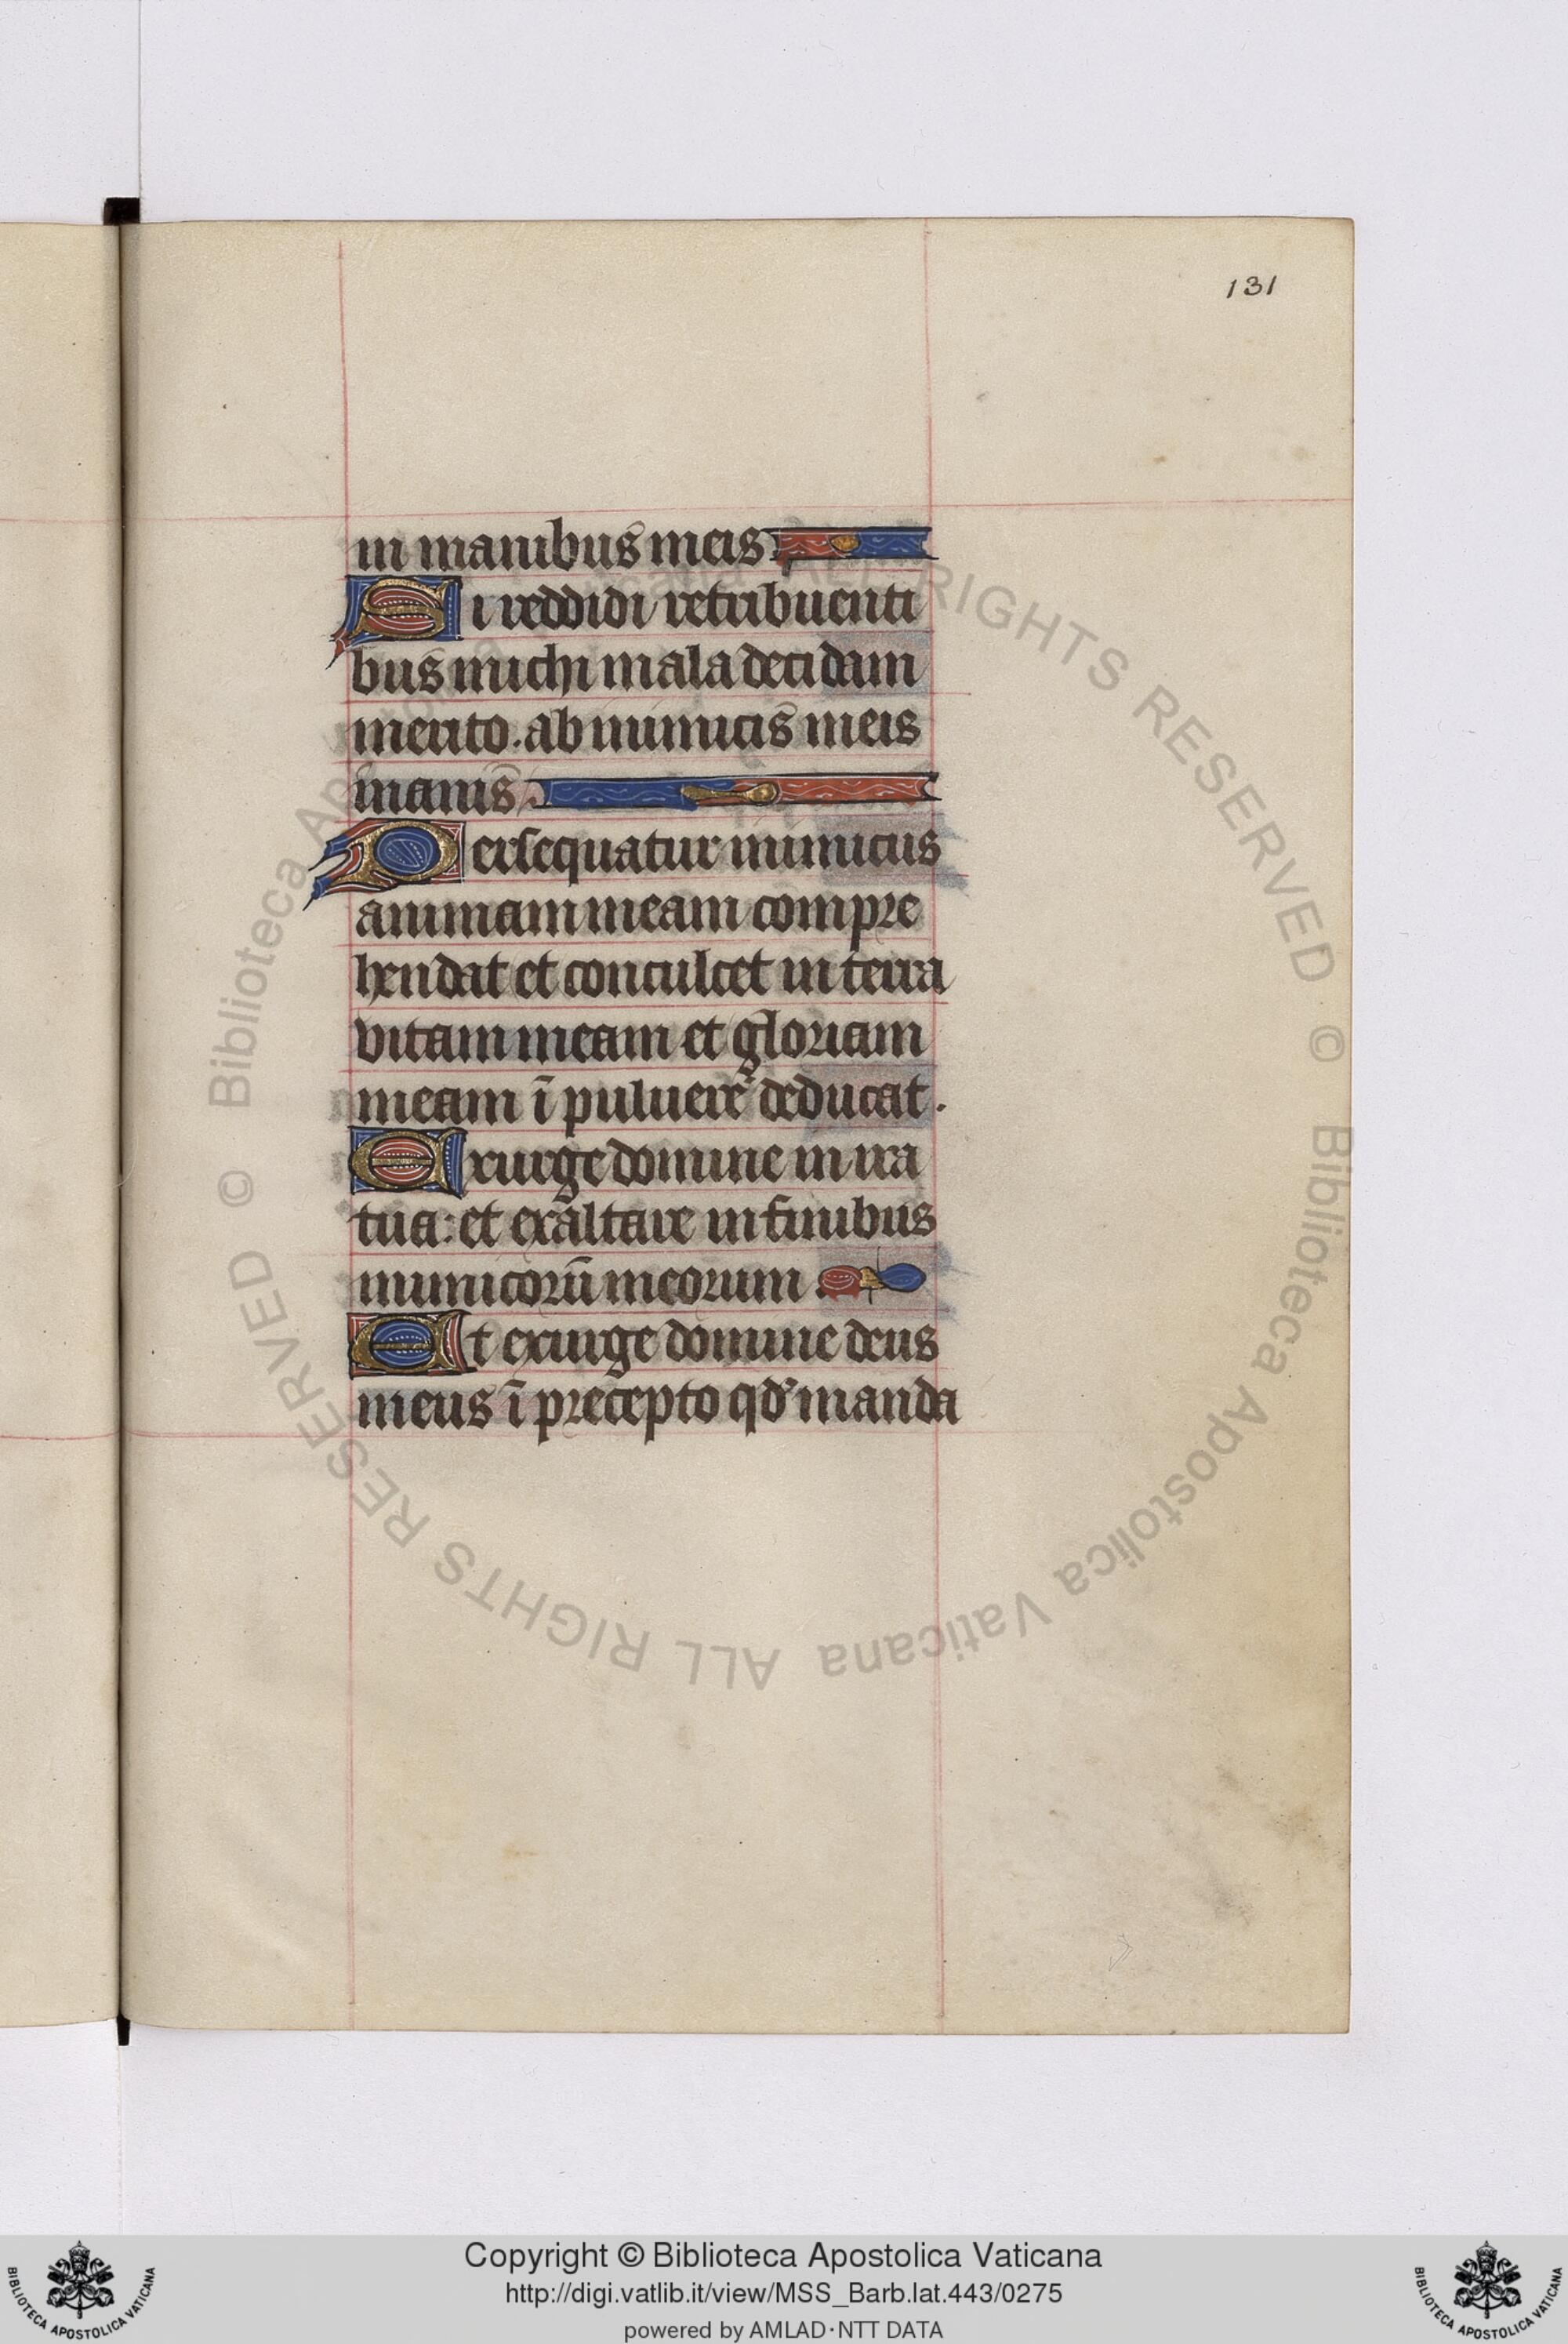 131
in manibus meis
Si reddidi retribuenti
bus michi mala decidam
merito. ab inimicis meis
inanis
Persequatur inimicus
animam meam compre
hendat et conculcet in terra
vitam meam et gloriam
meam ī puluerē deducat.
Exurge domine in ira
tua: et exaltare in finibus
inimicorū meorum
Et exurge domine deus
meus ī precepto qd' manda
© Biblioteca Apostolica Vaticana ALL RIGHTS RESERVED
© Biblioteca Apostolica Vaticana ALL RIGHTS RESERVED
BIBLIOTECA APOSTOLICA VATICANA
Copyright © Biblioteca Apostolica Vaticana
http://digi.vatlib.it/view/MSS_Barb.lat.443/0275
powered by AMLAD·NTT DATA
BIBLIOTECA APOSTOLICA VATICANA